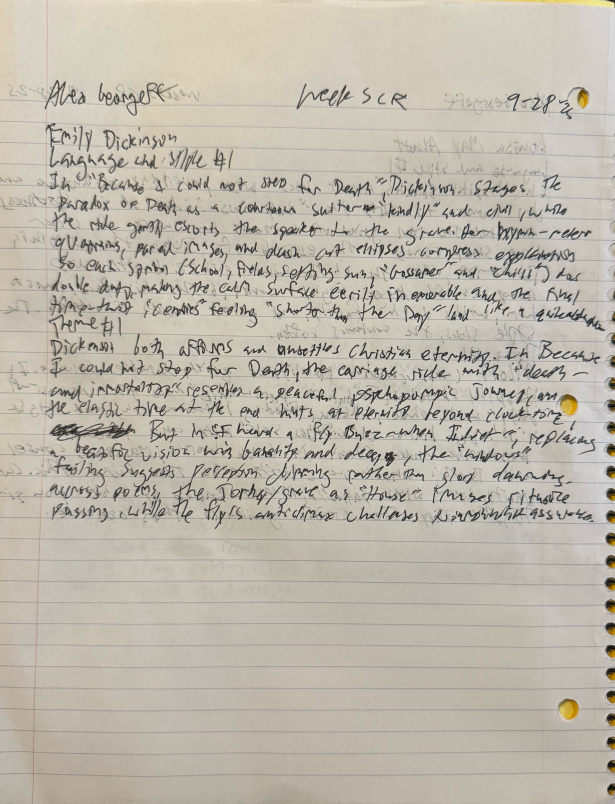 Alex Georgeff Week 5 CR 9-28-25
Emily Dickinson
Language and style #1
In "Because I could not stop for Death" Dickinson stages the
paradox of Death as a courteous suitor "kindly" and civil, while
the ride gently escorts the speaker to the grave. Her hymn-meter
quatrains, pared images, and dash cut ellipses compress explanation
so each symbol (School, Fields, setting sun, "Gossamer" and "chill") does
double duty, making the calm surface eerily and the final
time-twist "centuries" feeling "shorter than the Day" land like a quiet
Theme #1
Dickenson both affirms and unsettles Christian eternity. In Because
I could not stop for Death, the carriage ride with "death-
and immortality" resembles a peaceful, psychopompic journey, and
the elastic time at the end hints at eternity beyond clock-time,
But in I heard a fly Buzz-when I died, replacing
a beatific vision with banality and decay, the "windows"
failing suggests perception dimming rather than glory dawning.
across poems, the grave as "House" ritual
passing, while the fly's anticlimax challenges assurance.